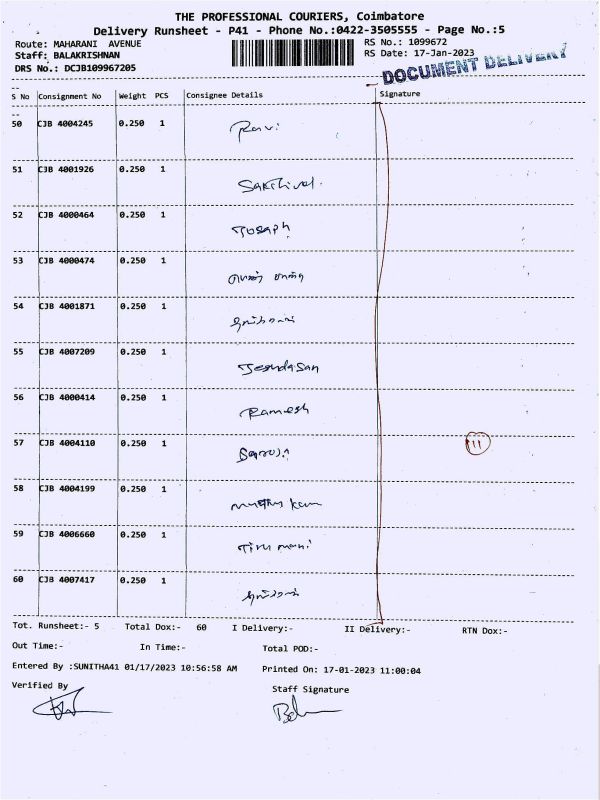 THE PROFESSIONAL COURIERS, Coimbatore
Delivery Runsheet - P41 - Phone No.:0422-3505555 - Page No.:5
Route: MAHARANI AVENUE RS No.: 1099672
Staff: BALAKRISHNAN RS Date: 17-Jan-2023
DRS No.: DCJB109967205 DOCUMENT DELIVERY
S No Consignment No Weight PCS Consignee Details Signature
50 CJB 4004245 0.250 1 Ravi
51 CJB 4001926 0.250 1 Sakthivel
52 CJB 4000464 0.250 1 Joseph
53 CJB 4000474 0.250 1
54 CJB 4001871 0.250 1
55 CJB 4007209 0.250 1
56 CJB 4000414 0.250 1 Ramesh
57 CJB 4004110 0.250 1 11
58 CJB 4004199 0.250 1
59 CJB 4006660 0.250 1
60 CJB 4007417 0.250 1
Tot. Runsheet:- 5 Total Dox:- 60 I Delivery:- II Delivery:- RTN Dox:-
Out Time:- In Time:- Total POD:-
Entered By :SUNITHA41 01/17/2023 10:56:58 AM Printed On: 17-01-2023 11:00:04
Verified By Staff Signature